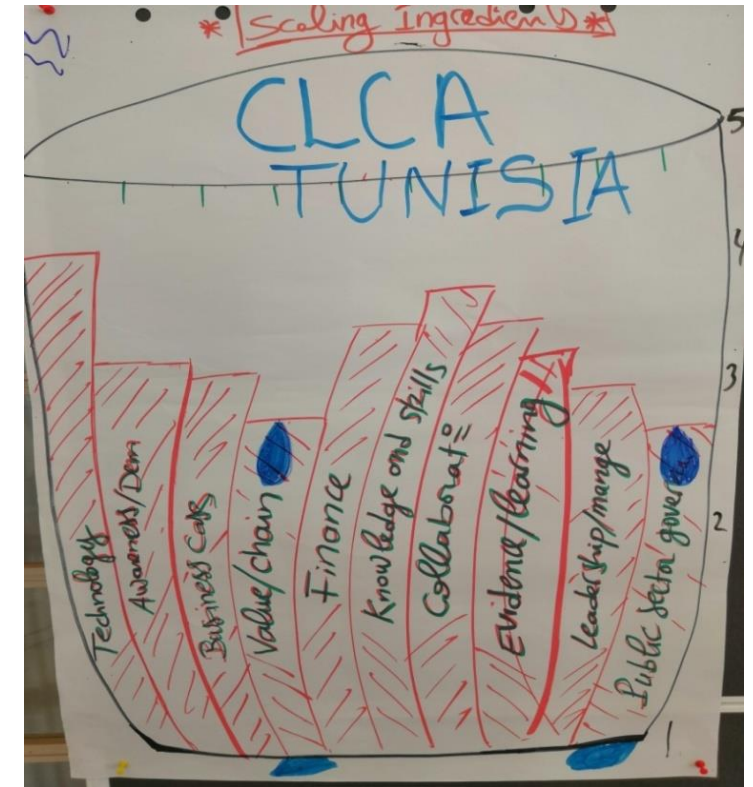 * Scaling Ingredients *
CLCA
TUNISIA
5
4
3
2
1
Technology
Awareness/Dem
Business Cas
Value/chain
Finance
Knowledge and skills
Collaborat°
Evidence/learning
Leadership/mange
Public Sector govern